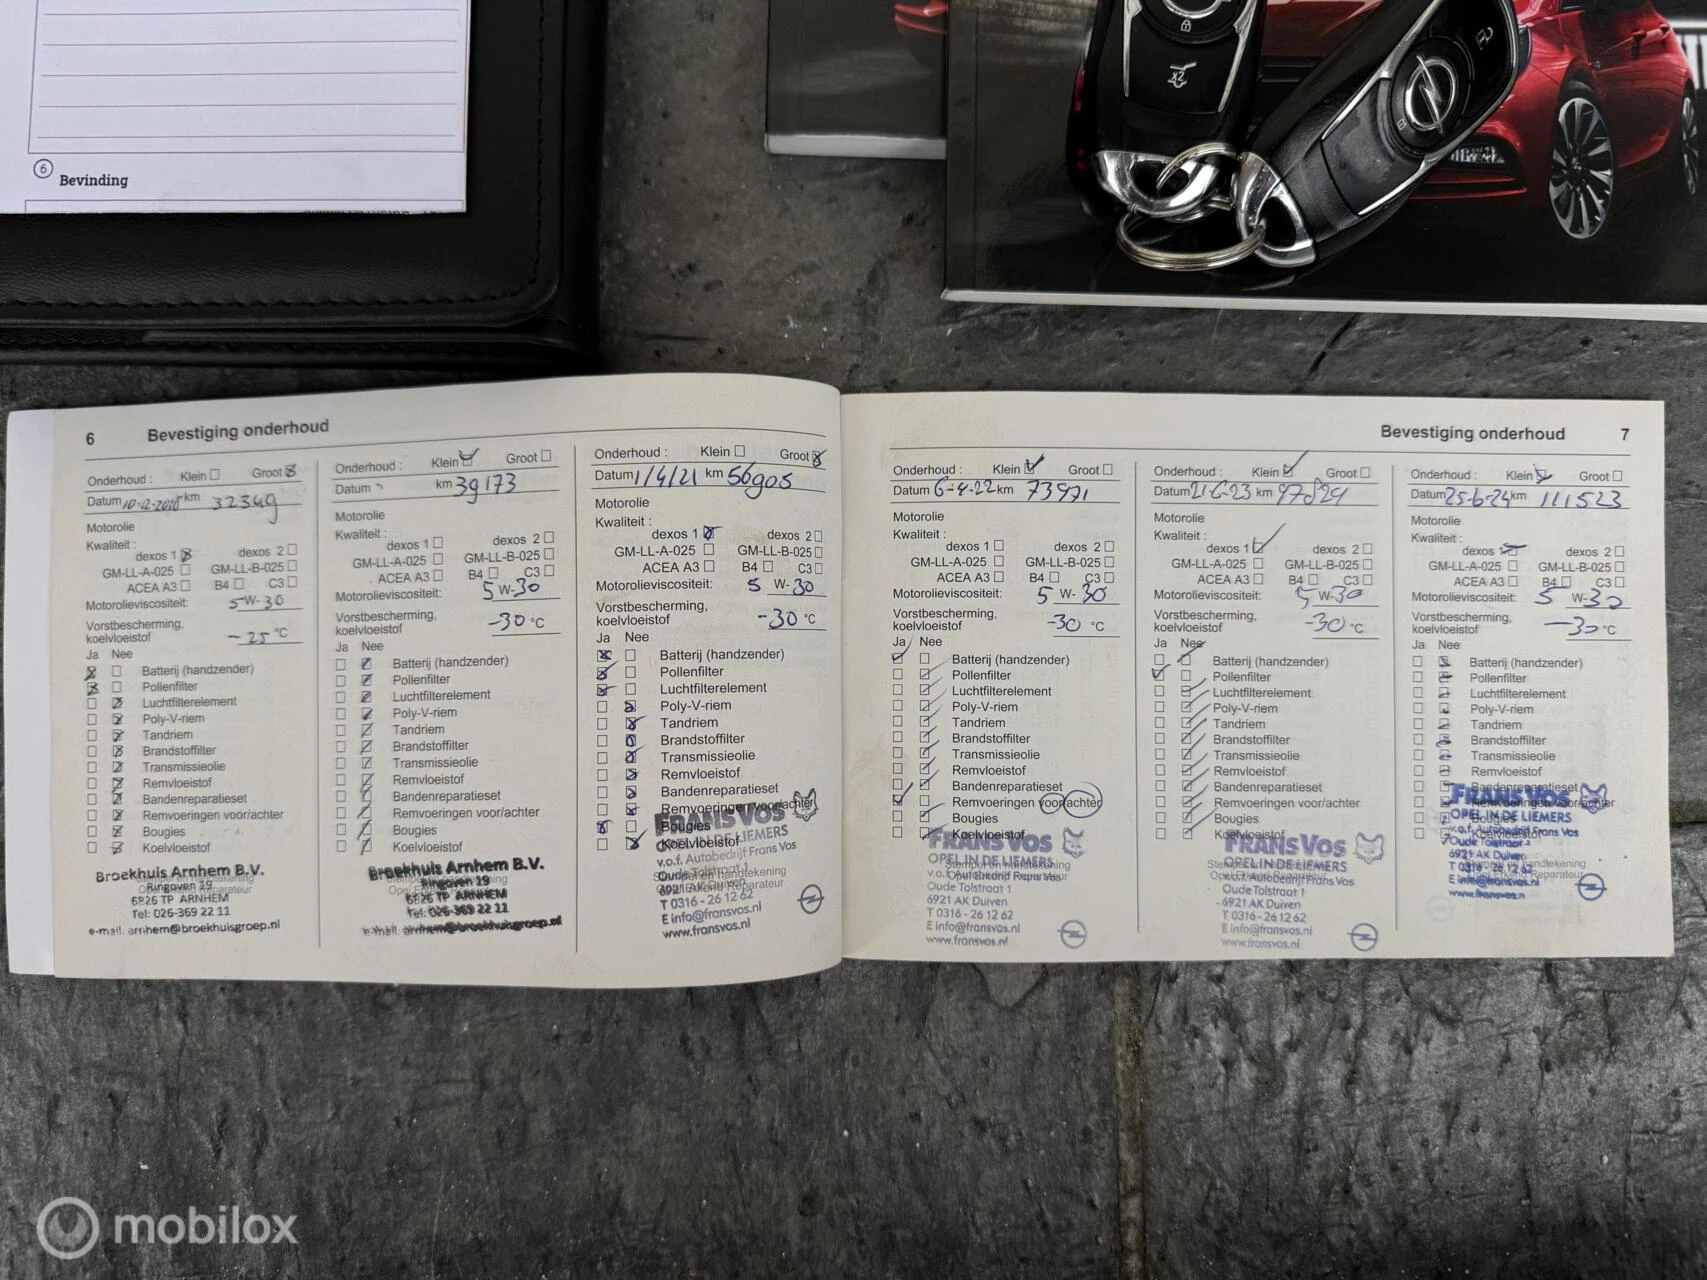 6
Bevinding
x2
6 Bevestiging onderhoud
Onderhoud : Klein Groot
Datum 10-12-2018 km 32349
Motorolie
Kwaliteit :
dexos 1 dexos 2
GM-LL-A-025 GM-LL-B-025
ACEA A3 B4 C3
Motorolieviscositeit: 5 W-30
Vorstbescherming,
koelvloeistof -25 °C
Ja Nee
Batterij (handzender)
Pollenfilter
Luchtfilterelement
Poly-V-riem
Tandriem
Brandstoffilter
Transmissieolie
Remvloeistof
Bandenreparatieset
Remvoeringen voor/achter
Bougies
Koelvloeistof
Broekhuis Arnhem B.V.
Ringoven 19
6826 TP ARNHEM
Tel: 026-369 22 11
e-mail: arnhem@broekhuisgroep.nl
Onderhoud : Klein Groot
Datum km 39173
Motorolie
Kwaliteit :
dexos 1 dexos 2
GM-LL-A-025 GM-LL-B-025
ACEA A3 B4 C3
Motorolieviscositeit: 5 W-30
Vorstbescherming,
koelvloeistof -30 °C
Ja Nee
Batterij (handzender)
Pollenfilter
Luchtfilterelement
Poly-V-riem
Tandriem
Brandstoffilter
Transmissieolie
Remvloeistof
Bandenreparatieset
Remvoeringen voor/achter
Bougies
Koelvloeistof
Broekhuis Arnhem B.V.
Ringoven 19
6826 TP ARNHEM
Tel: 026-369 22 11
e-mail: arnhem@broekhuisgroep.nl
Onderhoud : Klein Groot
Datum 1/4/21 km 56905
Motorolie
Kwaliteit :
dexos 1 dexos 2
GM-LL-A-025 GM-LL-B-025
ACEA A3 B4 C3
Motorolieviscositeit: 5 W-30
Vorstbescherming,
koelvloeistof -30 °C
Ja Nee
Batterij (handzender)
Pollenfilter
Luchtfilterelement
Poly-V-riem
Tandriem
Brandstoffilter
Transmissieolie
Remvloeistof
Bandenreparatieset
Remvoeringen voor/achter
Bougies
Koelvloeistof
FRANS VOS
OPEL IN DE LIEMERS
v.o.f. Autobedrijf Frans Vos
Oude Tolstraat 1
6921 AK Duiven
T 0316 - 26 12 62
E info@fransvos.nl
www.fransvos.nl
Bevestiging onderhoud 7
Onderhoud : Klein Groot
Datum 6-4-22 km 73971
Motorolie
Kwaliteit :
dexos 1 dexos 2
GM-LL-A-025 GM-LL-B-025
ACEA A3 B4 C3
Motorolieviscositeit: 5 W-30
Vorstbescherming,
koelvloeistof -30 °C
Ja Nee
Batterij (handzender)
Pollenfilter
Luchtfilterelement
Poly-V-riem
Tandriem
Brandstoffilter
Transmissieolie
Remvloeistof
Bandenreparatieset
Remvoeringen voor/achter
Bougies
Koelvloeistof
FRANS VOS
OPEL IN DE LIEMERS
v.o.f. Autobedrijf Frans Vos
Oude Tolstraat 1
6921 AK Duiven
T 0316 - 26 12 62
E info@fransvos.nl
www.fransvos.nl
Onderhoud : Klein Groot
Datum 21-6-23 km 97829
Motorolie
Kwaliteit :
dexos 1 dexos 2
GM-LL-A-025 GM-LL-B-025
ACEA A3 B4 C3
Motorolieviscositeit: 5 W-30
Vorstbescherming,
koelvloeistof -30 °C
Ja Nee
Batterij (handzender)
Pollenfilter
Luchtfilterelement
Poly-V-riem
Tandriem
Brandstoffilter
Transmissieolie
Remvloeistof
Bandenreparatieset
Remvoeringen voor/achter
Bougies
Koelvloeistof
FRANS VOS
OPEL IN DE LIEMERS
v.o.f. Autobedrijf Frans Vos
Oude Tolstraat 1
6921 AK Duiven
T 0316 - 26 12 62
E info@fransvos.nl
www.fransvos.nl
Onderhoud : Klein Groot
Datum 25-6-24 km 111523
Motorolie
Kwaliteit :
dexos 1 dexos 2
GM-LL-A-025 GM-LL-B-025
ACEA A3 B4 C3
Motorolieviscositeit: 5 W-30
Vorstbescherming,
koelvloeistof -30 °C
Ja Nee
Batterij (handzender)
Pollenfilter
Luchtfilterelement
Poly-V-riem
Tandriem
Brandstoffilter
Transmissieolie
Remvloeistof
Bandenreparatieset
Remvoeringen voor/achter
Bougies
Koelvloeistof
FRANS VOS
OPEL IN DE LIEMERS
v.o.f. Autobedrijf Frans Vos
Oude Tolstraat 1
6921 AK Duiven
T 0316 - 26 12 62
E info@fransvos.nl
www.fransvos.nl
mobilox